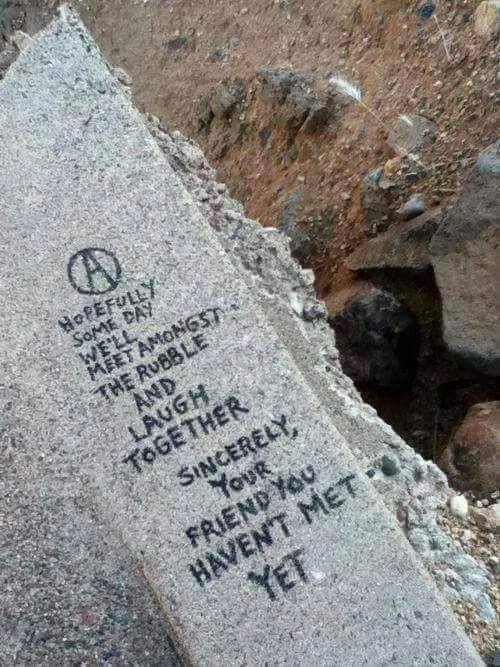 Ⓐ
HOPEFULLY
SOME DAY
WE'LL
MEET AMONGST
THE RUBBLE
AND
LAUGH
TOGETHER
SINCERELY,
YOUR
FRIEND YOU
HAVEN'T MET
YET